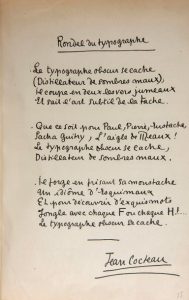 Rondel du typographe
Le typographe obscur se cache
(Distillateur de sombres maux)
Le coupe en deux les vers jumeaux
Et sait l'art subtil de la tache.
Que ce soit pour Paul, Pierre, Eustache,
Sacha Guitry, L'aigle de Meaux!
Le typographe obscur se cache,
Distillateur de sombres maux.
Le forge en frisant sa moustache
Un idiôme d'Esquimaux
Et pour découvrir d'exquis mots
Jongle avec chaque F ou chaque H!...
Le typographe obscur se cache.
Jean Cocteau